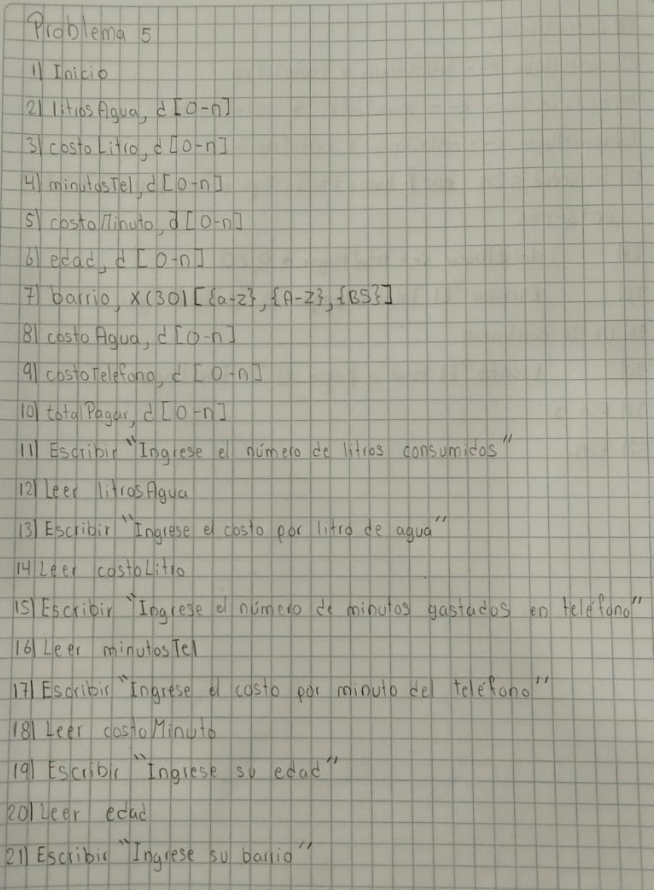 Problema 5
1) Inicio
2) litrosAgua, d [0-n]
3) costoLitro, d [0-n]
4) minutosTel, d [0-n]
5) costoMinuto, d [0-n]
6) edad, d [0-n]
7) barrio, X(30) [{a-z}, {A-Z}, {BS}]
8) costoAgua, d [0-n]
9) costoTelefono, d [0-n]
10) totalPagar, d [0-n]
11) Escribir "Ingrese el número de litros consumidos"
12) Leer litrosAgua
13) Escribir "Ingrese el costo por litro de agua"
14) Leer costoLitro
15) Escribir "Ingrese el número de minutos gastados en teléfono"
16) Leer minutosTel
17) Escribir "Ingrese el costo por minuto del teléfono"
18) Leer costoMinuto
19) Escribir "Ingrese su edad"
20) Leer edad
21) Escribir "Ingrese su barrio"